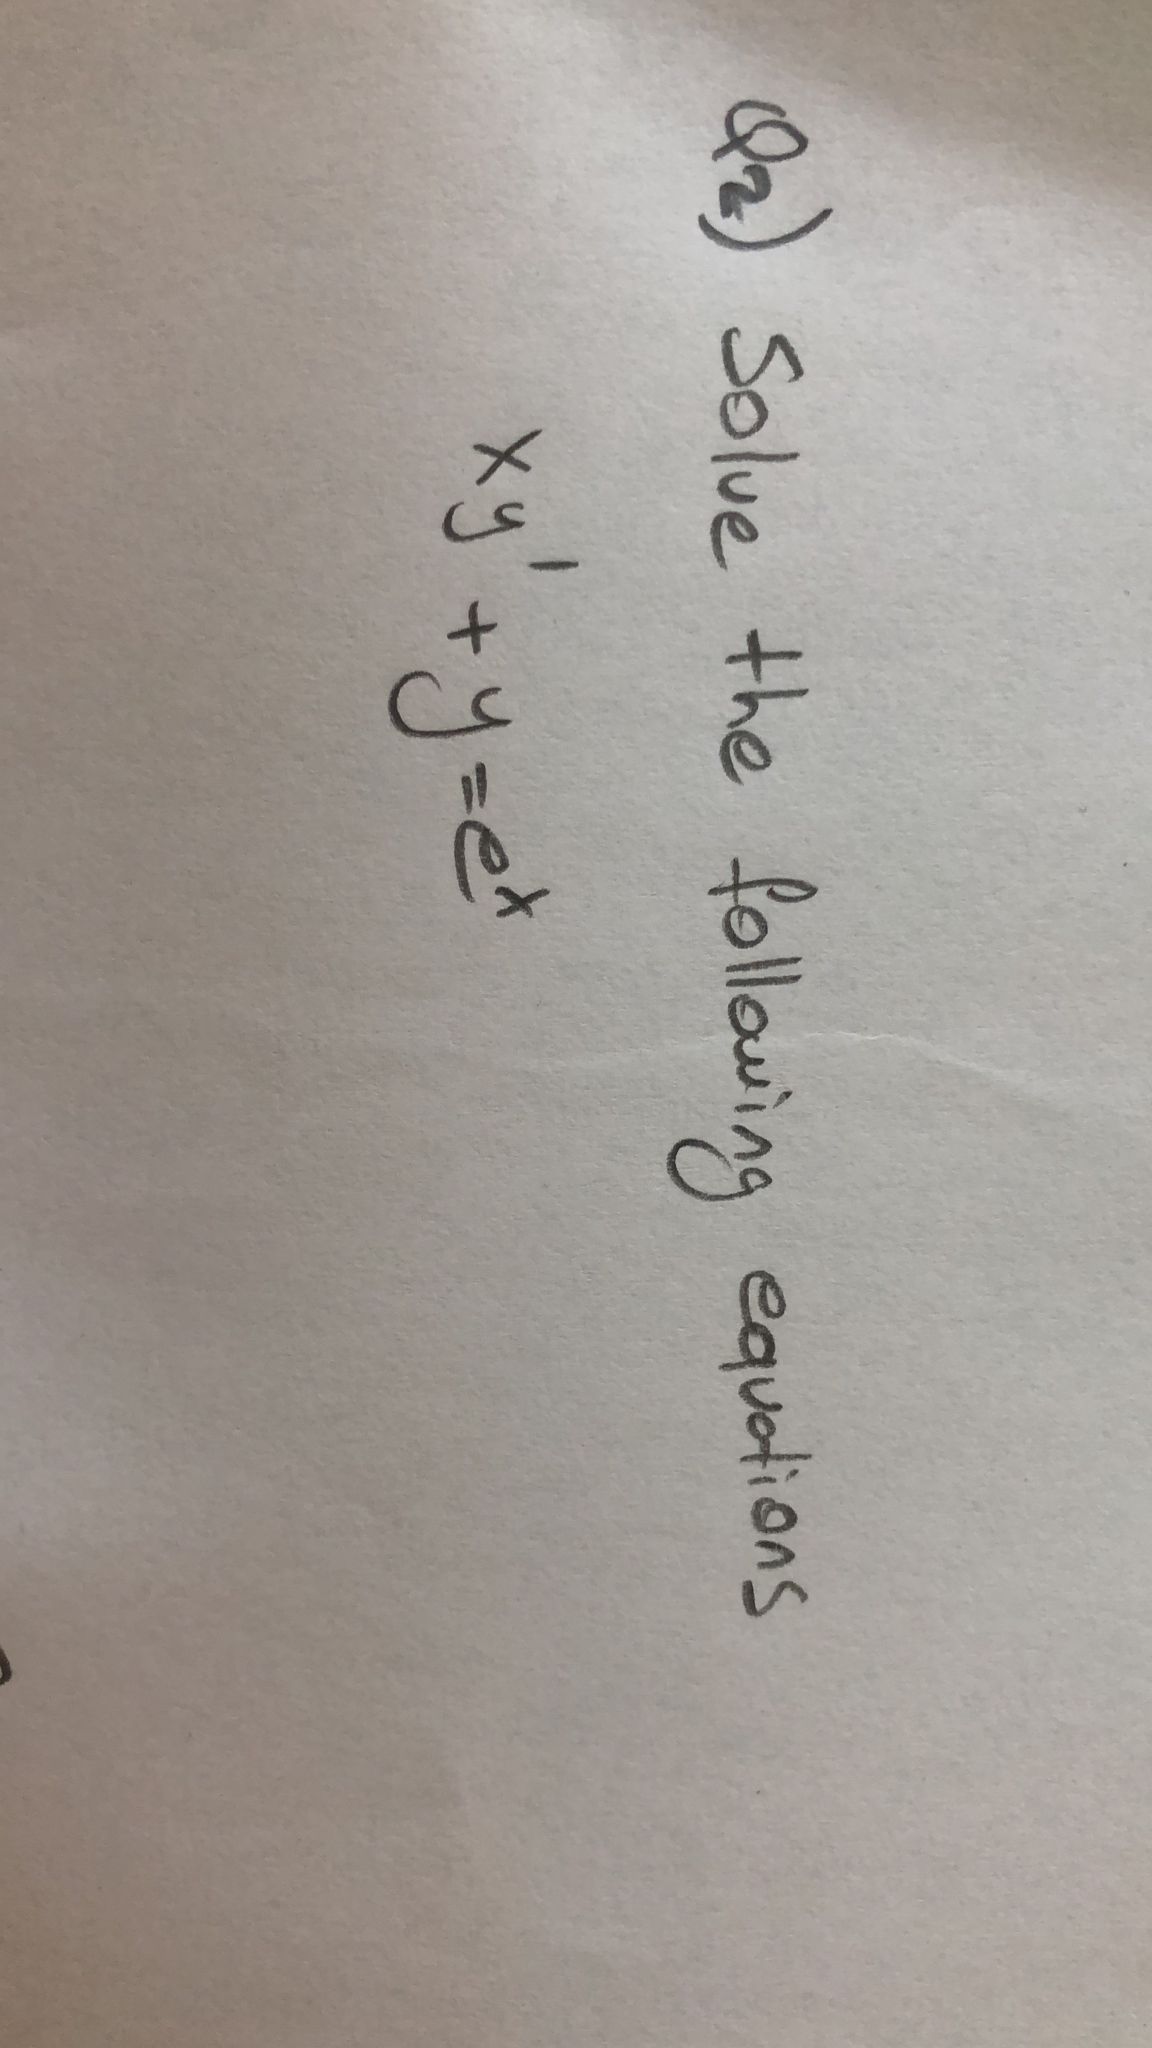 Q2) Solve the following equations
xy' + y = eˣ